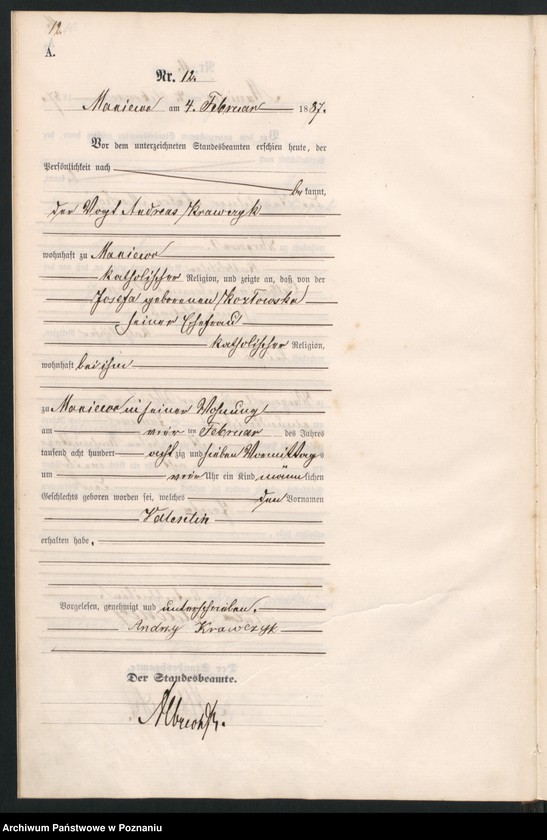 12.
A.
Nr. 12.
Maniewo am 4. Februar 1887.
Vor dem unterzeichneten Standesbeamten erschien heute, der
Persönlichkeit nach
be kannt,
der Vogt Andreas Krawczyk
wohnhaft zu Maniewo
katholischer Religion, und zeigte an, daß von der
Josefa geborenen Kozłowska
seiner Ehefrau
katholischer Religion,
wohnhaft bei ihm
zu Maniewo in seiner Wohnung
am vier ten Februar des Jahres
tausend acht hundert acht zig und sieben Vormittags
um vier Uhr ein Kind männ lichen
Geschlechts geboren worden sei, welches den Vornamen
Valentin
erhalten habe.
Vorgelesen, genehmigt und unterschrieben.
Andrzy Krawczyk
Der Standesbeamte.
Albrecht.
Archiwum Państwowe w Poznaniu